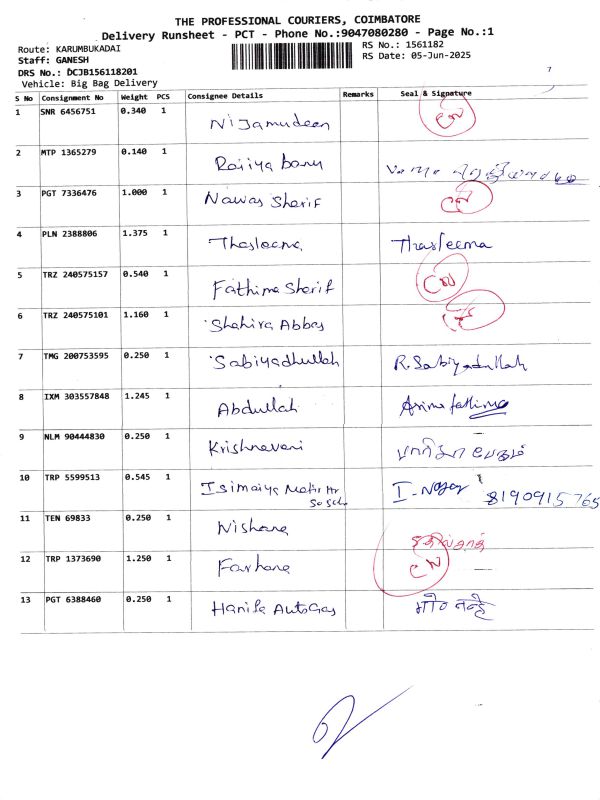 THE PROFESSIONAL COURIERS, COIMBATORE
Delivery Runsheet - PCT - Phone No.:9047080280 - Page No.:1
Route: KARUMBUKADAI RS No.: 1561182
Staff: GANESH RS Date: 05-Jun-2025
DRS No.: DCJB156118201
Vehicle: Big Bag Delivery
S No Consignment No Weight PCS Consignee Details Remarks Seal & Signature
1 SNR 6456751 0.340 1 Nijamudeen
2 MTP 1365279 0.140 1 Rajiya banu
3 PGT 7336476 1.000 1 Nawas Sherif
4 PLN 2388806 1.375 1 Thasleema Thasleema
5 TRZ 240575157 0.540 1 Fathima Sherif CN
6 TRZ 240575101 1.160 1 Shahira Abbas
7 TMG 200753595 0.250 1 Sabiyadhullah R. Sabiyadullah
8 IXM 303557848 1.245 1 Abdullah
9 NLM 90444830 0.250 1 Krishnaveni
10 TRP 5599513 0.545 1 I-Nagar 8190915765
11 TEN 69833 0.250 1 Nishana
12 TRP 1373690 1.250 1 Farhana CN
13 PGT 6388460 0.250 1 Hanifa AutoGas